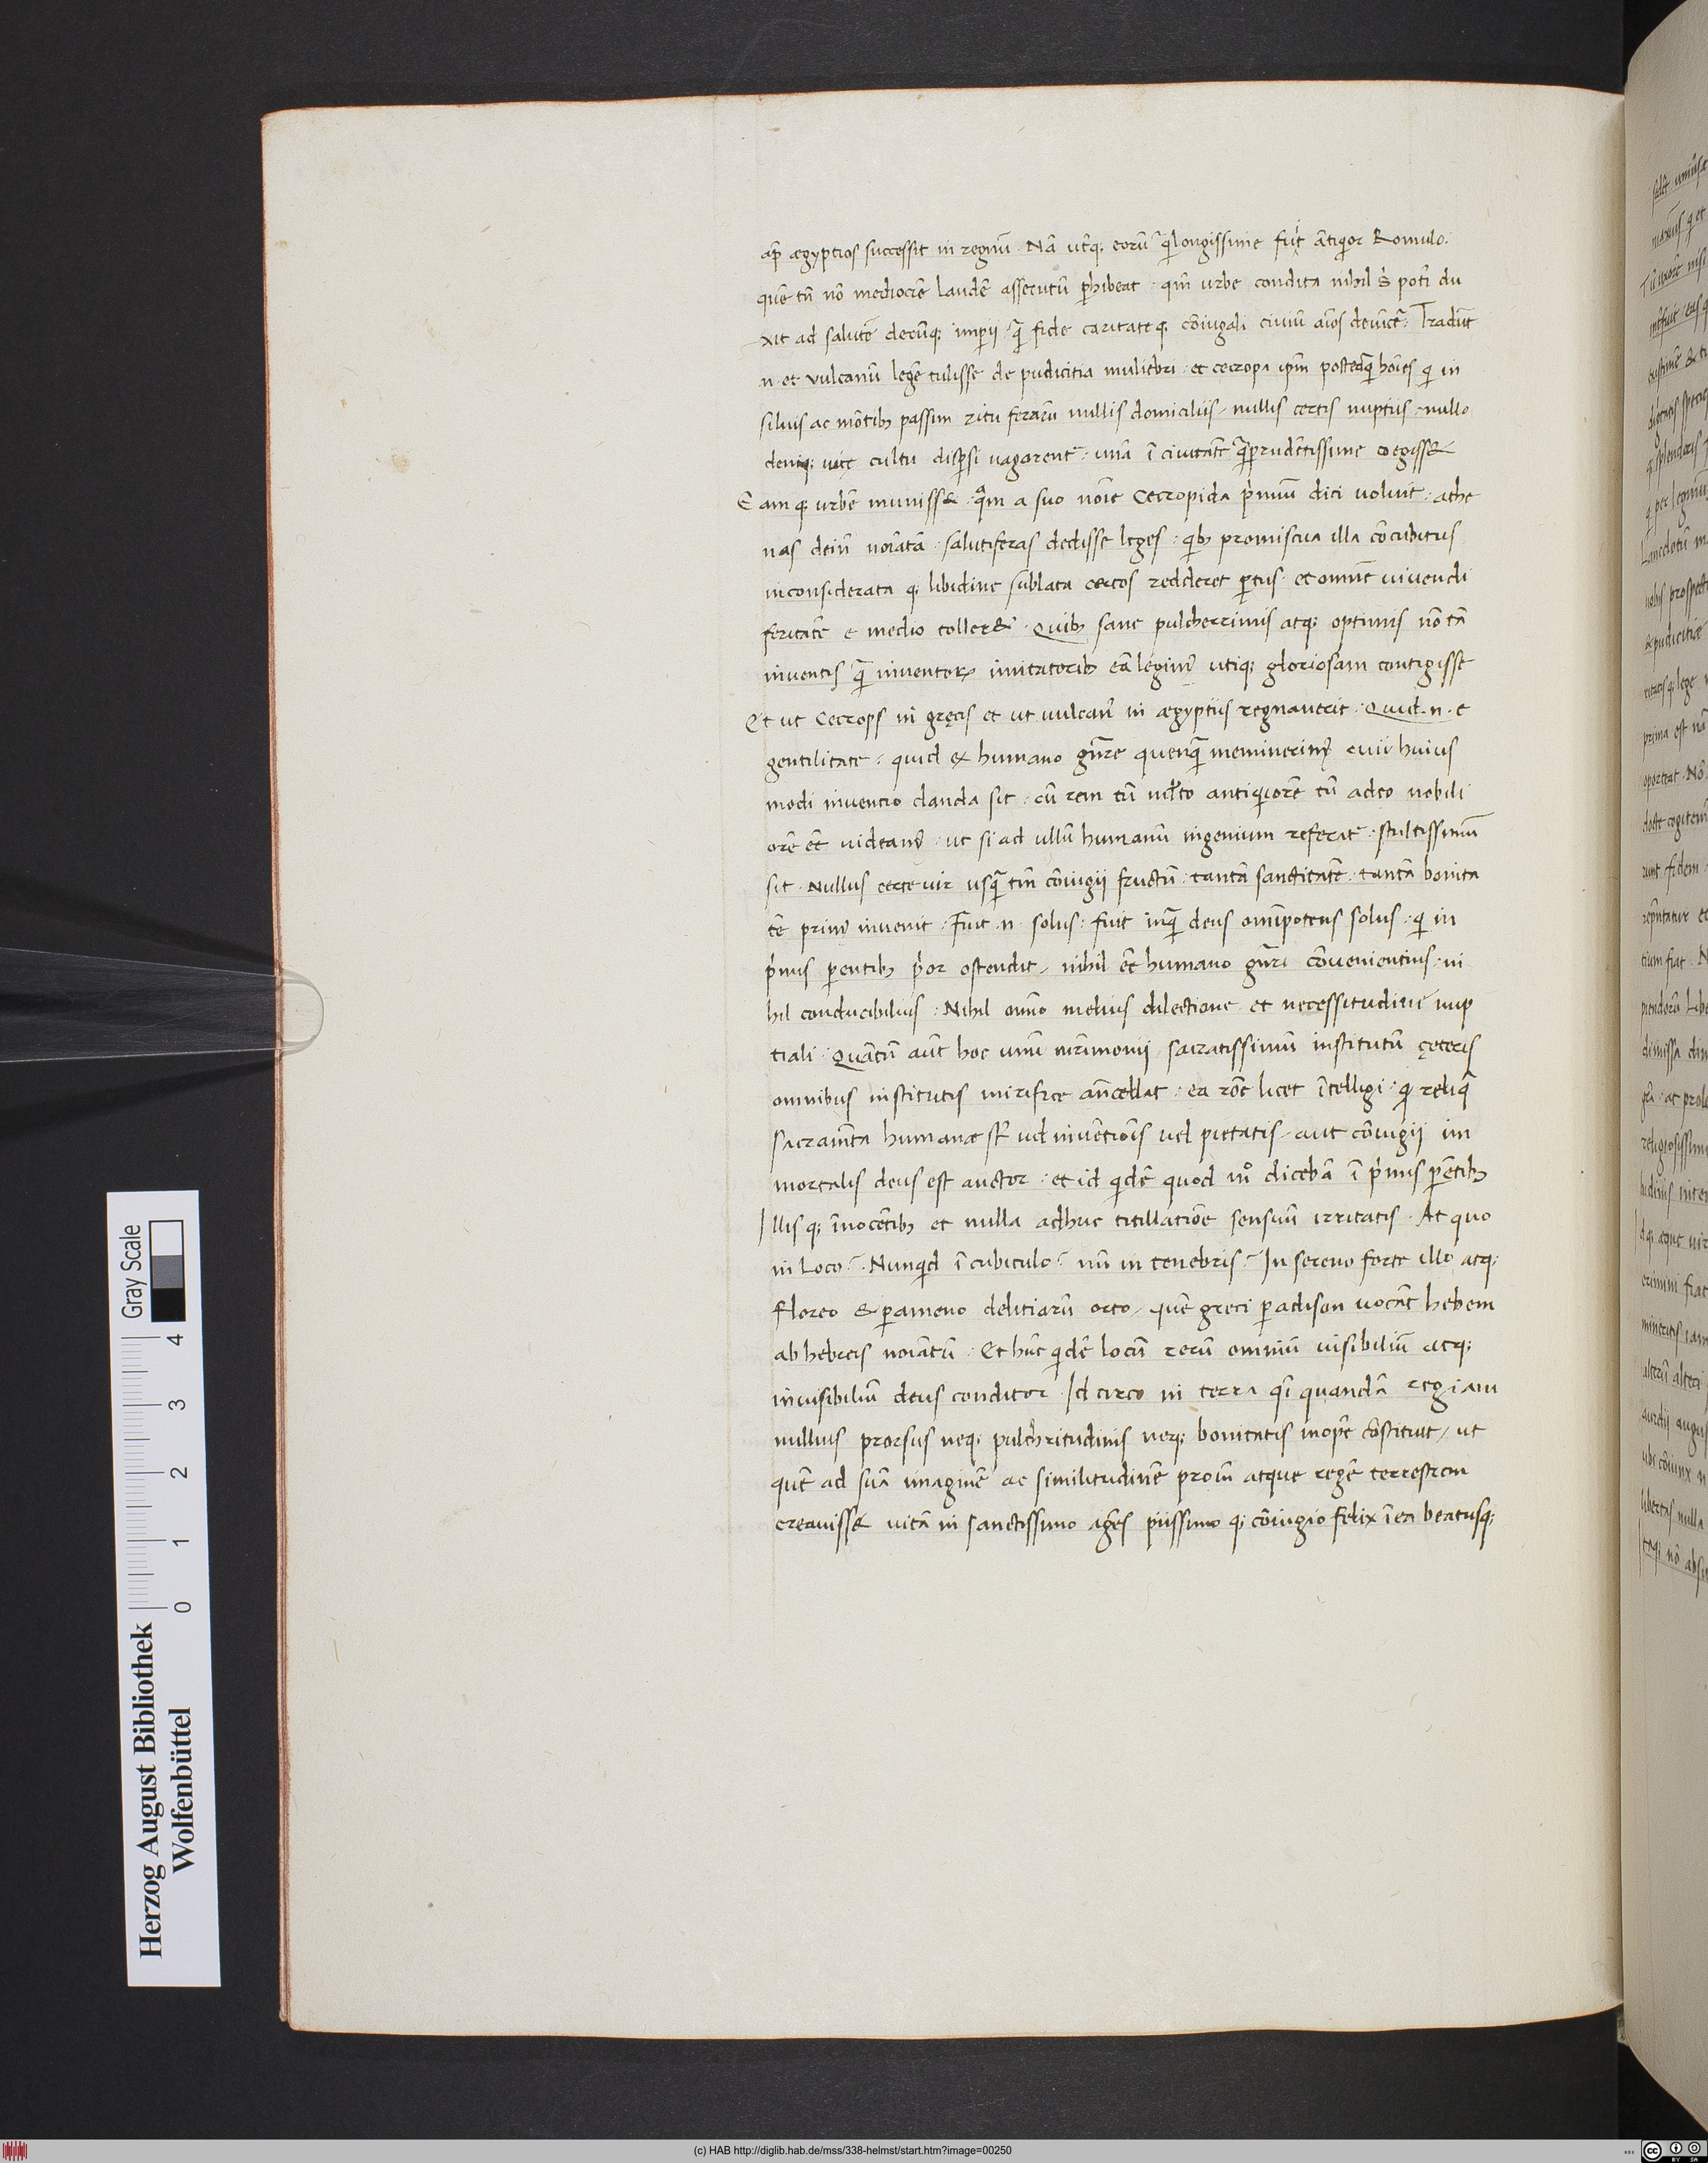 ap̄ ægyptios successit in regnū. Nā utq; eorū q̄ longissime fuīt ātiqͥor Romulo.
quē tn̄ nō mediocrē laudē assecutū ꝑhibeat. qm̄ urbe condita nihil s̄ potī du
xit ad salutē decūq; imperii q̄ fide caritateq; cōiugali civiū aīos devīcē. Tradūt
.n. et vulcanū legē tulisse de pudicitia muliebri. et cecropa ipm̄ posteaq̄ hōies qͥ in
silvis ac mōtibꝫ passim ritu ferarū nullis domiciliis, nullis certis nuptiis, nullo
deniq; vite cultu disꝑsi vagarent̄. unā ī civitatē q̄prudētissime coegiss&
Eamq; urbē muniss& qͣm a suo noīe Cecropida pͥmuū dici voluit. athe
nas dein̄ noīatā. salutiferas dedisse leges. qͥbꝫ promiscua illa cōcubitus
inconsiderata q; libidine sublata certos redderet ꝑtus. et omnē vivendi
feritatē e medio toller&. Quibꝫ sane pulcherrimis atq; optimis nō tā
inventis q̄ inventoꝝ imitatoribꝫ eā legimꝰ utiq; gloriosam contigisse
Et ut Cecrops in gręcis et ut vulcanꝰ in ægyptiis regnaverit. Quid .n. e
gentilitate. quid ex humano gn̄re quenq̄ meminerimꝰ cuii huius
modi inventio danda sit. cū rem tū ml̄to antiqͥorē tū adeo nobili
orē eē videamꝰ. ut si ad ullū humanū ingenium referat̄. stultissimū
sit. Nullus certe vir usq̄ tm̄ cōiugii fructū. tantā sanctitatē. tantā bonita
tē primꝰ invenit. Fuit .n. solus. fuit inq̄ deus omīpotens solus. qͥ in
pͥmis ꝑentibꝫ pͥor ostendit, nihil eē humano gn̄ri cōvenientius. ni
hil conducibilius. Nihil omīno melius dilectione et necessitudine nup
tiali. Quātū aūt hoc unū mr̄imonii sacratissimū institutū cęteris
omnibus institutis mirifice an̄cellat. ea rōne licet ītelligi. qͥ reliq̄
sacramēta humanæ sūt vel invētiōis vel pietatis, aut cōiugii im
mortalis deus est auctor. et id qͥdē quod mō dicebā ī pͥmis ꝑētibꝫ
Illis q; īnocētibꝫ et nulla adhuc titillatiōe sensuū irritatis. At quo
in loco? Nunqͥd ī cubiculo? nū in tenebris? In sereno forte illo atq;
floreo & ꝑameno delitiarū orto, quē greci ꝑadison vocāt hebem
ab hebreis noīatū. Et hūc qͥdē locū rerū omniū visibiliū atq;
invisibiliū deus conditor. Idcirco in terra qͣsi quandā regiam
nullius prorsus neq; pulchritudinis neq; bonitatis inopē cōstituit, ut
quē ad suā imaginē ac similitudinē proīn atque regē terrestrem
creaviss& vitā in sanctissimo agēs piissimo q; cōiugio felix ī ea beatusq;
Gray Scale
0 1 2 3 4
Herzog August Bibliothek
Wolfenbüttel
(c) HAB http://diglib.hab.de/mss/338-helmst/start.htm?image=00250